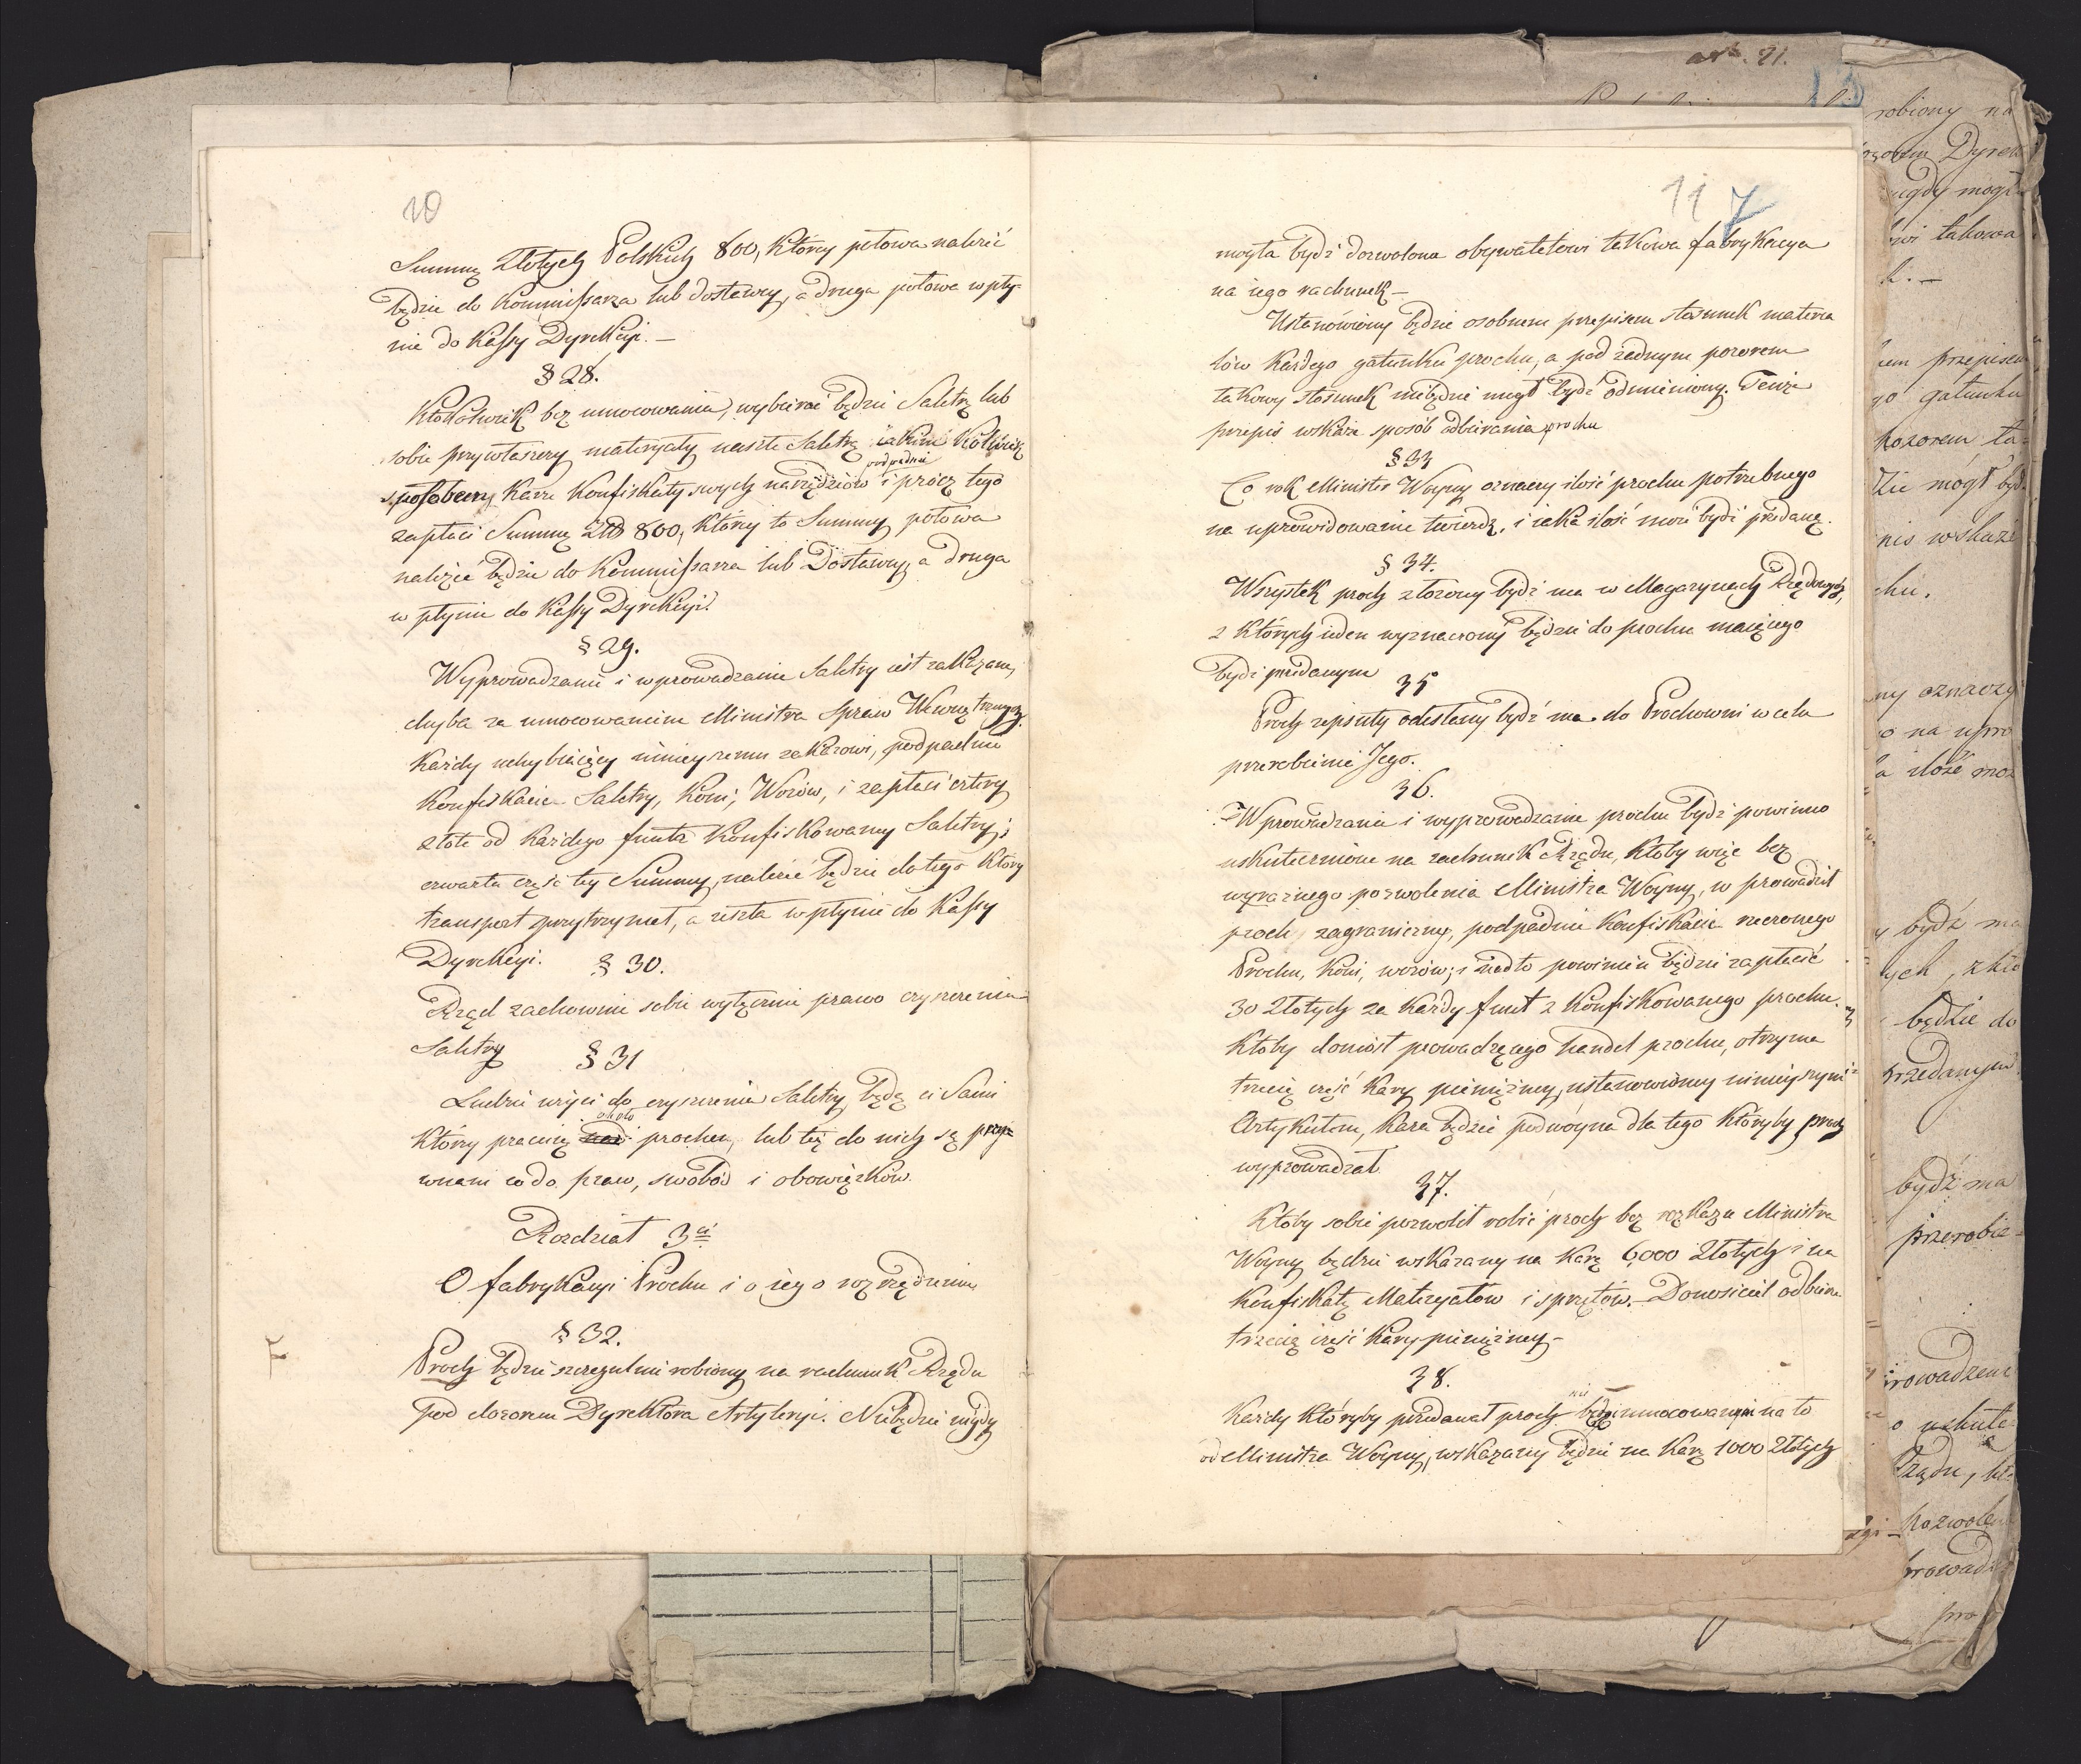 10
Summę Złotych Polskich 800, którey połowa należić
będzie do Kommissarza lub dostawcy, a druga połowa wpły-
nie do Kassy Dyrekcyi. —
§ 28.
Ktokolwiek bez umocowania, wybierać będzie Saletrę lub
sobie przywłaszczy materyały naszłe Saletrą iakim Kolwiek
sposobem, podpadnie Karze Konfiskaty swych narzędziów i prócz tego
zapłaci Summę Zł 800, który to Summy połowa
należeć będzie do Kommissarza lub Dostawcy, a druga
wpłynie do Kassy Dyrekcyi.
§ 29.
Wyprowadzanie i wprowadzanie Saletry iest zakazane,
chyba za umocowaniem Ministra Spraw Wewnętrznych.
Każdy uchybiaiący ninieyszemu zakazowi, podpadnie
Konfiskacie Saletry, Koni, Wozów, i zapłaci cztery
złote od każdego funta Konfiskowaney Saletry;
czwarta część tey Summy, należeć będzie do tego który
transport przytrzymał, a reszta wpłynie do Kassy
Dyrekcyi.
§ 30.
Rząd zachowuie sobie wyłącznie prawo czyszczenia
Saletry
§ 31
Ludzie użyci do czyszczenia Saletry, będą ci Sami
którzy pracuią około prochu, lub też do nich są przyró-
wnani co do praw, swobód i obowiązków.
Rozdział 3ci
O fabrykacyi Prochu i o iego rozrządzeniu
§ 32.
Proch będzie szczegulnie robiony na rachunek Rządu
pod dozorem Dyrektora Artyleryi. Niebędzie nigdy
11 7
mogła bydź dozwolona obywatelowi takowa fabrykacya
na iego rachunek —
Ustanowiony będzie osobnem przepisem stosunek materia
łów każdego gatunku prochu, a pod żadnym pozorem
takowy stosunek niebędzie mógł bydź odmieniony. Tenże
przepis wskaże sposób odbierania prochu
§ 33
Co rok Minister Woyny oznaczy ilość prochu potrzebnego
na uprowidowanie twierdz, i iaka ilość może bydź przedaną.
§ 34.
Wszystek proch złożony bydź ma w Magazynach Rządowych,
z których ieden wyznaczony będzie do prochu maiącego
bydź przedanym
35
Proch zepsuty odesłany bydź ma do Prochowni w celu
przerobienia Jego.
36.
Wprowadzanie i wyprowadzanie prochu bydź powinno
uskutecznione na rachunek Rządu, ktoby więc bez
wyraźnego pozwolenia Ministra Woyny, wprowadził
proch zagraniczny, podpadnie Konfiskacie rzeczonego
Prochu, Koni, wozów; i nadto powinien będzie zapłacić
30 Złotych za każdy funt zKonfiskowanego prochu.
Ktoby doniósł prowadzącego handel prochu, otrzyma
trzecią część Kary pieniężney, ustanowioney ninieyszym
Artykułem, Kara będzie podwóyna dla tego któryby proch
wyprowadzał
37.
Ktoby sobie pozwolił robić proch bez rozkazu Ministra
Woyny będzie wskazany na Karę 6,000 Złotych i na
Konfiskatę Materyałów i sprzętów. Donosiciel odbierze
trzecią część Kary pieniężney —
38.
Każdy któryby przedawał proch nie będąc umocowanym na to
od Ministra Woyny, wskazany będzie na Karę 1000 Złotych
ark. 21.
13
robiony na
Dyrek
mogł
takowa
przepisem
gatunku
pozorem ta-
dzie mógł byd
wskaże
chu.
oznaczy
na upro
ilość moż
bydź ma
będzie do
przedanym
bydź ma
przerobie-
rowadzeni
uskute-
Rządu, kt-
pozwole
prowadz